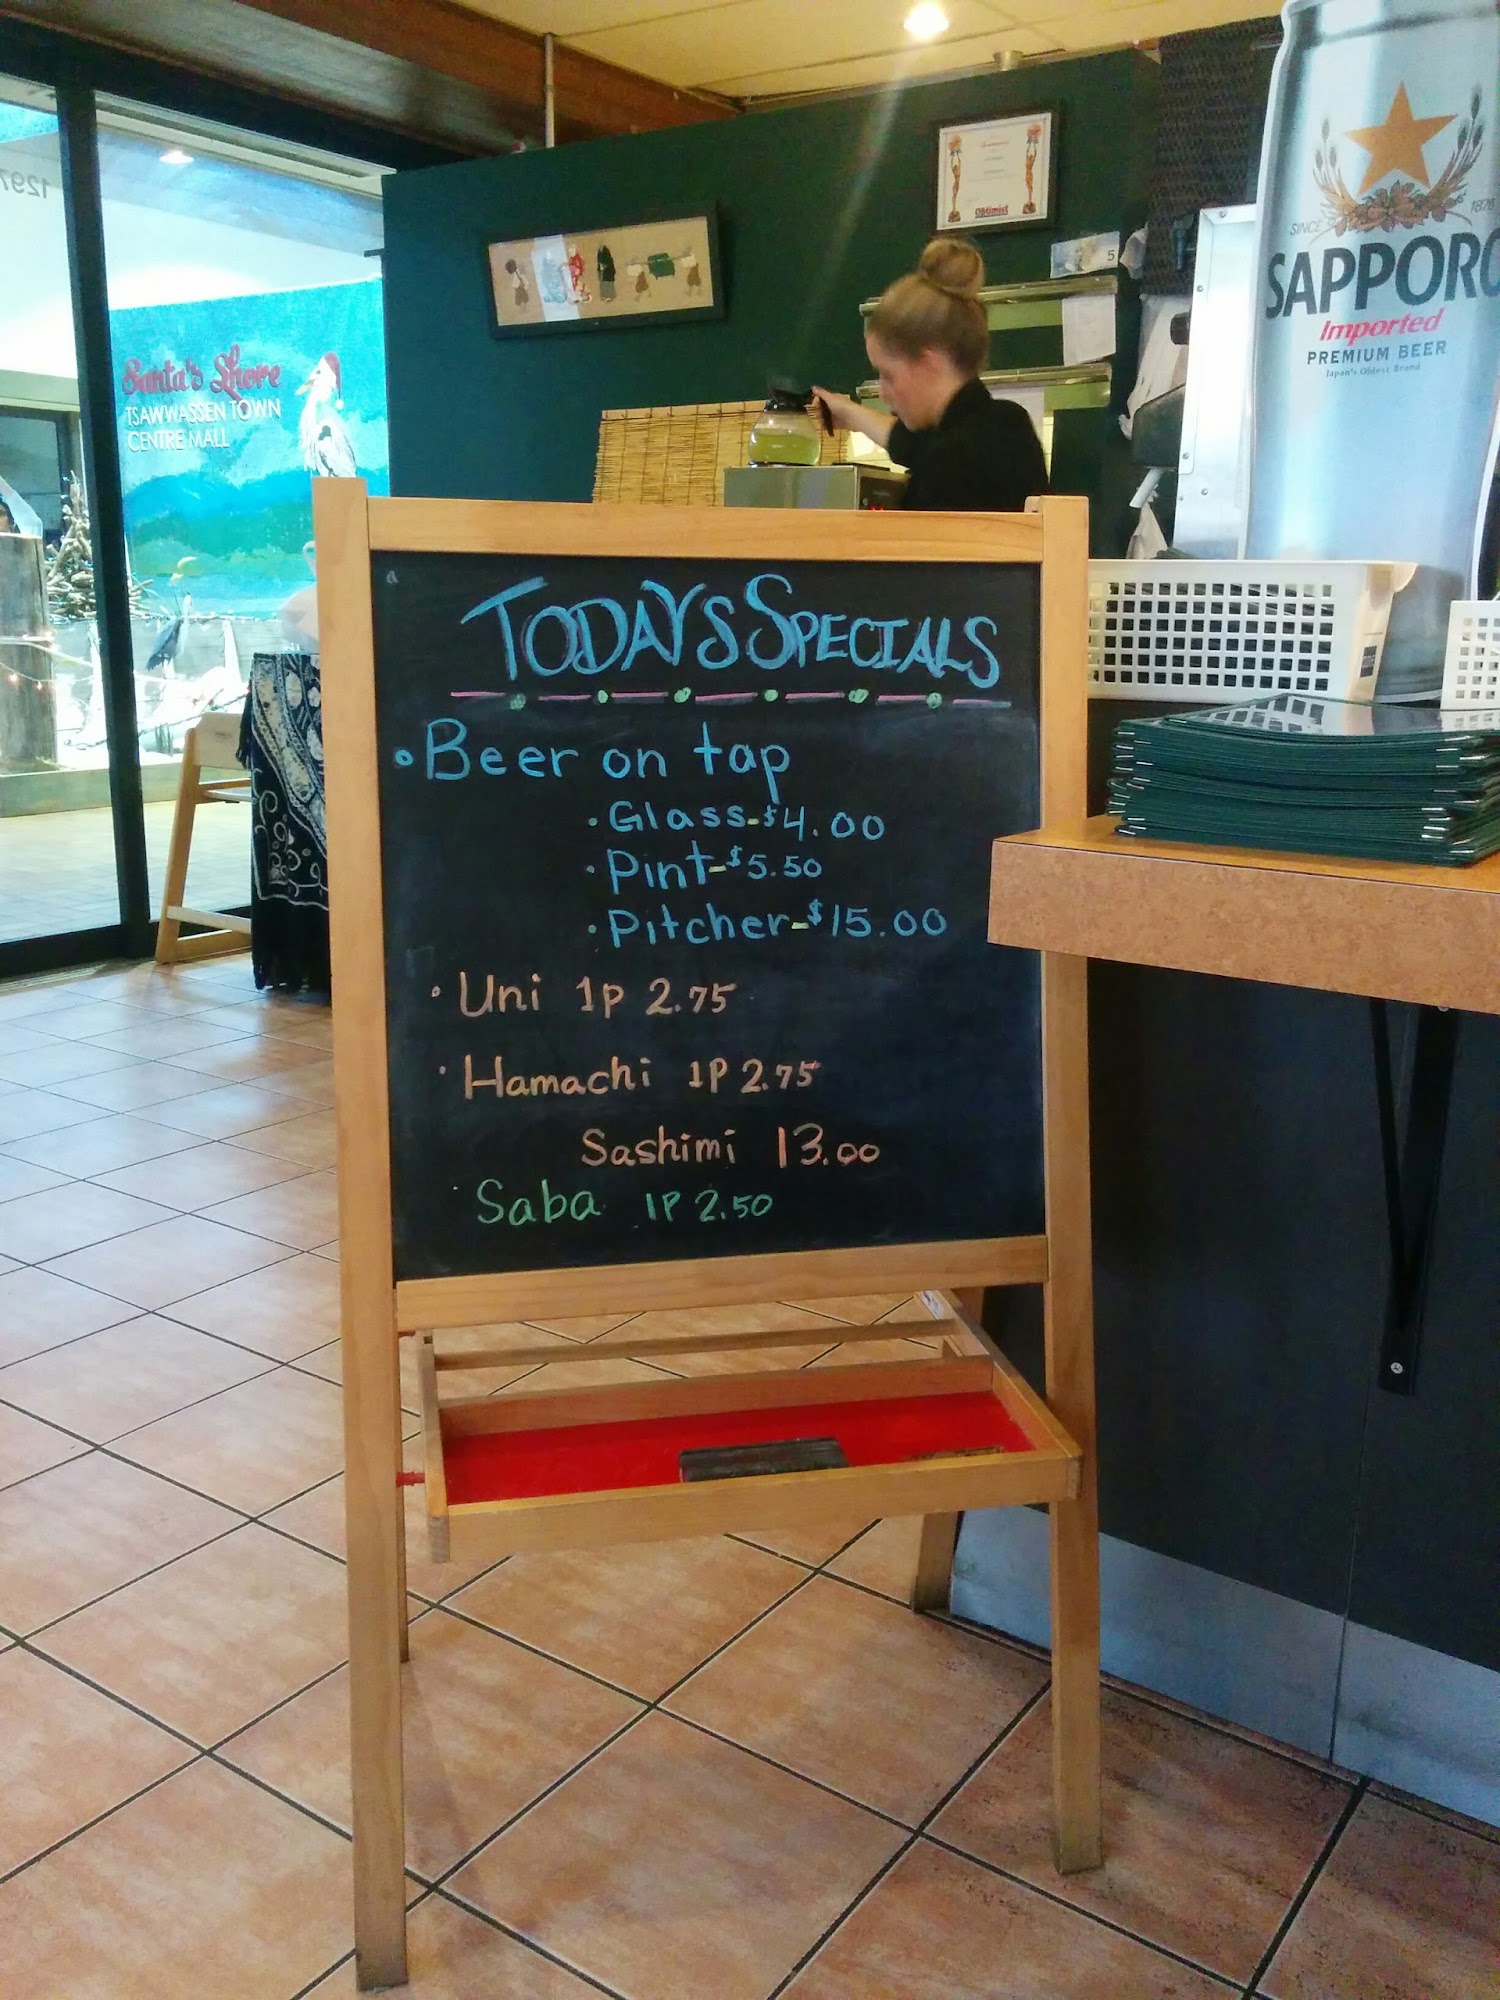 1297
Santa's Shore
TSAWWASSEN TOWN
CENTRE MALL
Optimist
5
SINCE 1876
SAPPORO
Imported
PREMIUM BEER
Japan's Oldest Brand
TODAY'S SPECIALS
• Beer on tap
• Glass-$4.00
• Pint-$5.50
• Pitcher-$15.00
• Uni 1P 2.75
• Hamachi 1P 2.75
Sashimi 13.00
• Saba 1P 2.50